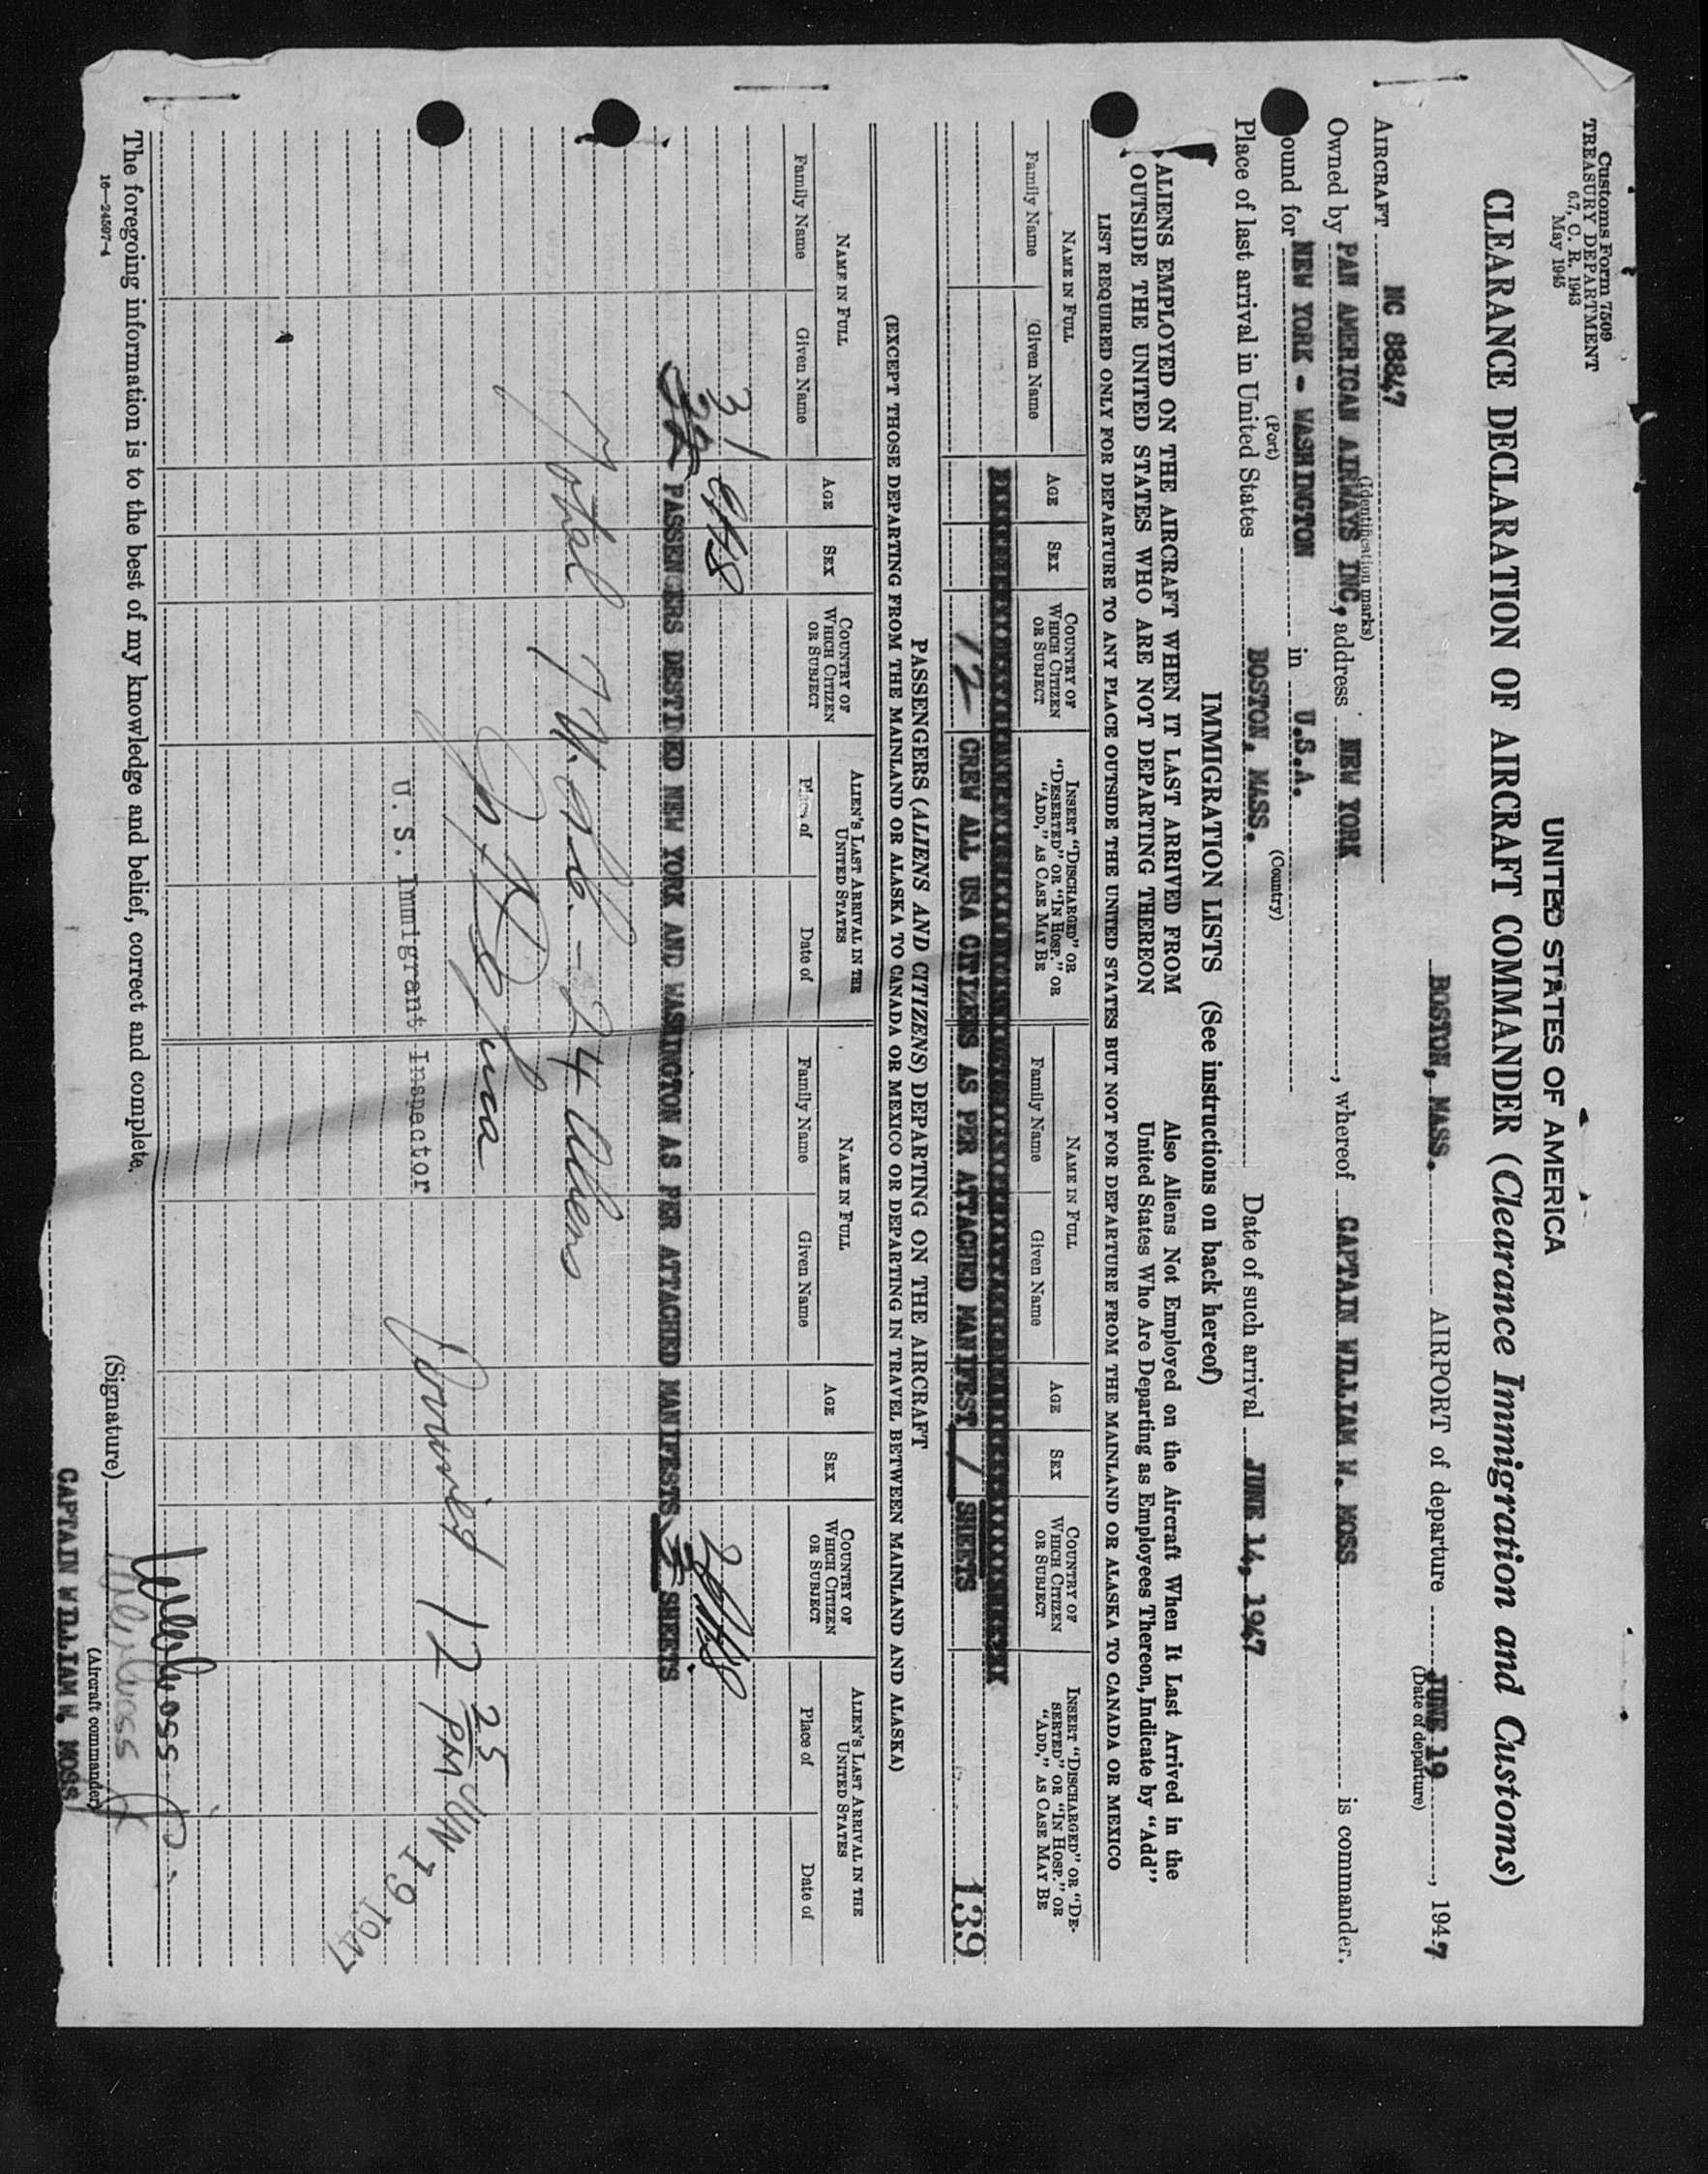 Customs Form 7509
TREASURY DEPARTMENT
6.7, C. R. 1943
May 1945
UNITED STATES OF AMERICA
CLEARANCE DECLARATION OF AIRCRAFT COMMANDER (Clearance Immigration and Customs)
BOSTON, MASS. AIRPORT of departure JUNE 19, 1947
(Date of departure)
AIRCRAFT NC 88847
(Identification marks)
Owned by PAN AMERICAN AIRWAYS INC, address NEW YORK, whereof CAPTAIN WILLIAM W. MOSS is commander.
ound for NEW YORK - WASHINGTON in U.S.A.
(Port) (Country)
Place of last arrival in United States BOSTON, MASS. Date of such arrival JUNE 14, 1947
IMMIGRATION LISTS (See instructions on back hereof)
ALIENS EMPLOYED ON THE AIRCRAFT WHEN IT LAST ARRIVED FROM
OUTSIDE THE UNITED STATES WHO ARE NOT DEPARTING THEREON
Also Aliens Not Employed on the Aircraft When It Last Arrived in the
United States Who Are Departing as Employees Thereon, Indicate by "Add"
LIST REQUIRED ONLY FOR DEPARTURE TO ANY PLACE OUTSIDE THE UNITED STATES BUT NOT FOR DEPARTURE FROM THE MAINLAND OR ALASKA TO CANADA OR MEXICO
NAME IN FULL
Family Name Given Name
AGE
SEX
COUNTRY OF WHICH CITIZEN OR SUBJECT
INSERT "DISCHARGED" OR "DESERTED" OR "IN HOSP." OR "ADD," AS CASE MAY BE
NAME IN FULL
Family Name Given Name
AGE
SEX
COUNTRY OF WHICH CITIZEN OR SUBJECT
INSERT "DISCHARGED" OR "DESERTED" OR "IN HOSP." OR "ADD," AS CASE MAY BE
12 CREW ALL USA CITIZENS AS PER ATTACHED MANIFEST 1 SHEETS
139
PASSENGERS (ALIENS AND CITIZENS) DEPARTING ON THE AIRCRAFT
(EXCEPT THOSE DEPARTING FROM THE MAINLAND OR ALASKA TO CANADA OR MEXICO OR DEPARTING IN TRAVEL BETWEEN MAINLAND AND ALASKA)
NAME IN FULL
Family Name Given Name
AGE
SEX
COUNTRY OF WHICH CITIZEN OR SUBJECT
ALIEN'S LAST ARRIVAL IN THE UNITED STATES
Place of Date of
NAME IN FULL
Family Name Given Name
AGE
SEX
COUNTRY OF WHICH CITIZEN OR SUBJECT
ALIEN'S LAST ARRIVAL IN THE UNITED STATES
Place of Date of
31
2
32 PASSENGERS DESTINED NEW YORK AND WASHINGTON AS PER ATTACHED MANIFESTS 3 SHEETS
Total 7 - 24 Aliens
U. S. Immigrant Inspector
12 25 PM JUN 19 1947
The foregoing information is to the best of my knowledge and belief, correct and complete.
(Signature)
(Aircraft commander)
CAPTAIN WILLIAM W. MOSS
16—24597-4